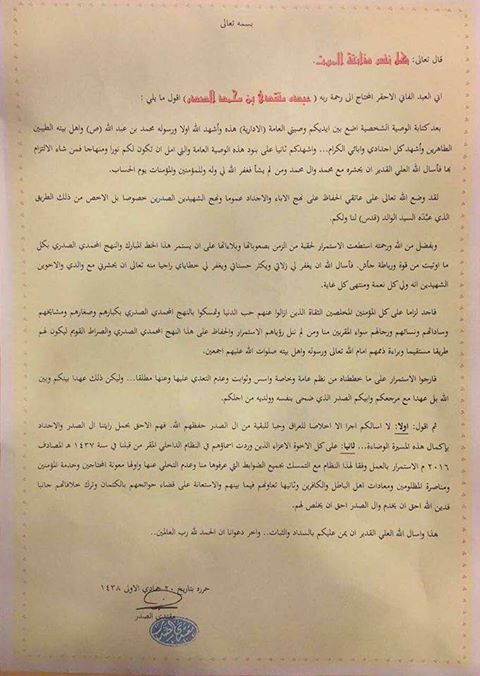 بسمه تعالى
قال تعالى: كل نفس ذائقة الموت.
اني العبد الفاني الاحقر المحتاج الى رحمة ربه (سيد مقتدى بن محمد الصدر) اقول ما يلي :
بعد كتابة الوصية الشخصية اضع بين ايديكم وصيتي العامة (الادارية) هذه وأشهد الله اولا ورسوله محمد بن عبد الله (ص) واهل بيته الطيبين
الطاهرين وأشهد كل اجدادي وابائي الكرام... واشهدكم ثانيا على بنود هذه الوصية العامة والتي امل ان تكون لكم نورا ومنهاجا فمن شاء الالتزام
بها فأسال الله العلي القدير ان يحشره مع محمد وال محمد ومن لم يشأ فغفر الله لي وله وللمؤمنين والمؤمنات يوم الحساب.
لقد وضع الله تعالى على عاتقي الحفاظ على نهج الاباء والاجداد عموما ونهج الشهيدين الصدرين خصوصا بل الاخص من ذلك الطريق
الذي عبّده السيد الوالد (قدس) لنا ولكم.
وبفضل من الله ورحمته استطعت الاستمرار لحقبة من الزمن بصعوباتها وبلاءاتها على ان يستمر هذا الخط المبارك والنهج المحمدي الصدري بكل
ما اوتيت من قوة ورباطة جأش. فأسال الله ان يغفر لي زلاتي ويكثر حسناتي ويغفر لي خطاياي راجيا منه تعالى ان يحشرني مع والدي والاخوين
الشهيدين انه ولي كل نعمة ومنتهى كل غاية.
فاجد لزاما على كل المؤمنين المخلصين الثقاة الذين ازالوا عنهم حب الدنيا وتمسكوا بالنهج المحمدي الصدري بكبارهم وصغارهم ومشايخهم
وساداتهم ونسائهم ورجالهم سواء المقربين منا ومن لم ننل رؤياهم الاستمرار والحفاظ على هذا النهج المحمدي الصدري والصراط القويم ليكون لهم
طريقا مستقيما وبراءة ذممهم امام الله تعالى ورسوله واهل بيته صلوات الله عليهم اجمعين.
فارجوا الاستمرار على ما خططناه من نظم عامة وخاصة واسس وثوابت وعدم التعدي عليها وعنها مطلقا... وليكن ذلك عهدا بينكم وبين
الله بل عهدا مع مرجعكم وابيكم الصدر الذي ضحى بنفسه وولديه من اجلكم.
ثم اقول: اولا: لا اسالكم اجرا الا اخلاصا للعراق وحبا للبقية من ال الصدر حفظهم الله. فهم الاحق بحمل رايتنا ال الصدر والاجداد
بإكمال هذه المسيرة الوضاءة... ثانيا: على كل الاخوة الاعزاء الذين وردت اسماؤهم في النظام الداخلي المقر من قبلنا في سنة ١٤٣٧ هـ المصادف
٢٠١٦ م الاستمرار بالعمل وفقا لهذا النظام مع التمسك بجميع الضوابط التي عرفوها منا وعدم التخلي عنها واولها معونة المحتاجين وخدمة المؤمنين
ومناصرة المظلومين ومعادات اهل الباطل والكافرين وثانيها تعاونهم فيما بينهم والاستعانة على قضاء حوائجهم بالكتمان وترك خلافاتهم جانبا
فدين الله احق ان يخدم وال الصدر احق ان يخلص لهم.
هذا واسال الله العلي القدير ان يمن عليكم بالسداد والثبات... واخر دعوانا ان الحمد لله رب العالمين..
حرر بتاريخ ٢٠ جمادي الاولى ١٤٣٨
مقتدى الصدر